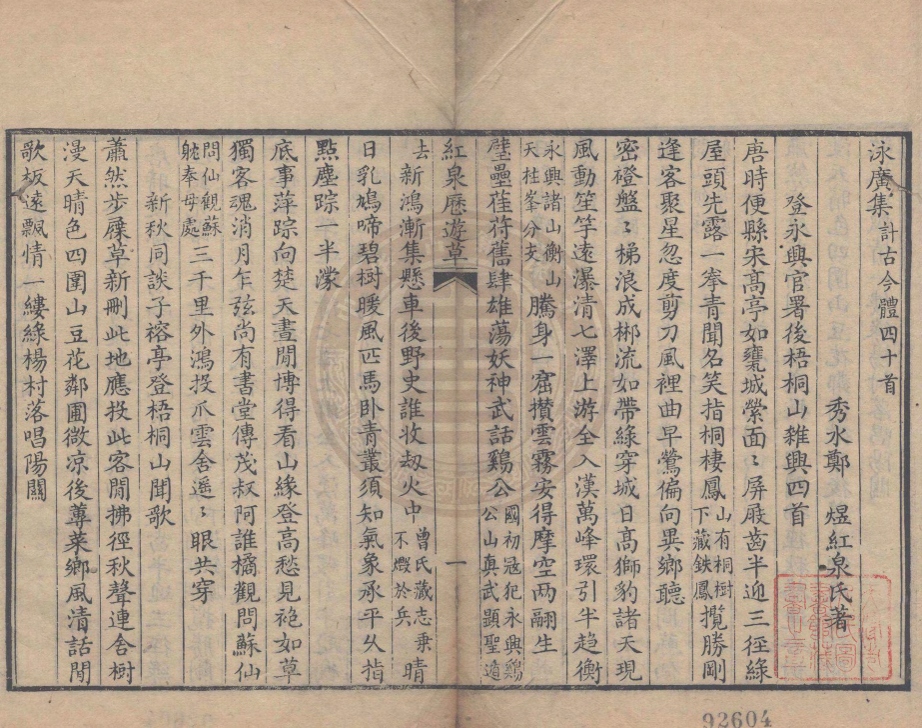 泳廣集計古今體四十首
秀水鄭煜紅泉氏著
登永興官署後梧桐山雜興四首
唐時便縣宋髙亭如甕城縈面〻屏屐齒半迎三徑綠
屋頭先露一拳青聞名笑指桐棲鳳山有桐樹下藏鉄鳳攬勝剛
逢客聚星忽度剪刀風裡曲早鶯偏向異鄉聽
密磴盤〻梯浪成郴流如帶綠穿城日髙獅豹諸天現
風動笙竽遠瀑清七澤上游全入漢萬峰環引半趋衡
永興諸山衡山天柱峯分支騰身一窟攢雲霧安得摩空两翮生
壁壘萑苻舊肆雄蕩妖神武話鷄公國初冦犯永興鷄公山真武顕聖遁
去新鴻漸集懸車後野史誰收刼火中曾氏藏志乗不燬於兵晴
日乳鳩啼碧樹暖風匹馬卧青叢須知氣象承平久指
點塵踪一半濛
底事萍踪向楚天晝閒博得看山緣登高愁見袍如草
獨客魂消月乍弦尚有書堂傳茂叔阿誰橘觀問蘇仙
問仙觀蘇躭奉母處三千里外鴻投爪雲舍遥〻眼共穿
新秋同談子褣亭登梧桐山聞歌
蕭然步屧草新刪此地應投此客閒拂徑秋聲連舍樹
漫天晴色四圍山豆花鄰圃微凉後蓴菜鄉風清話間
歌板遠飄情一縷綠楊村落唱陽關
紅泉歷遊草
一
92604